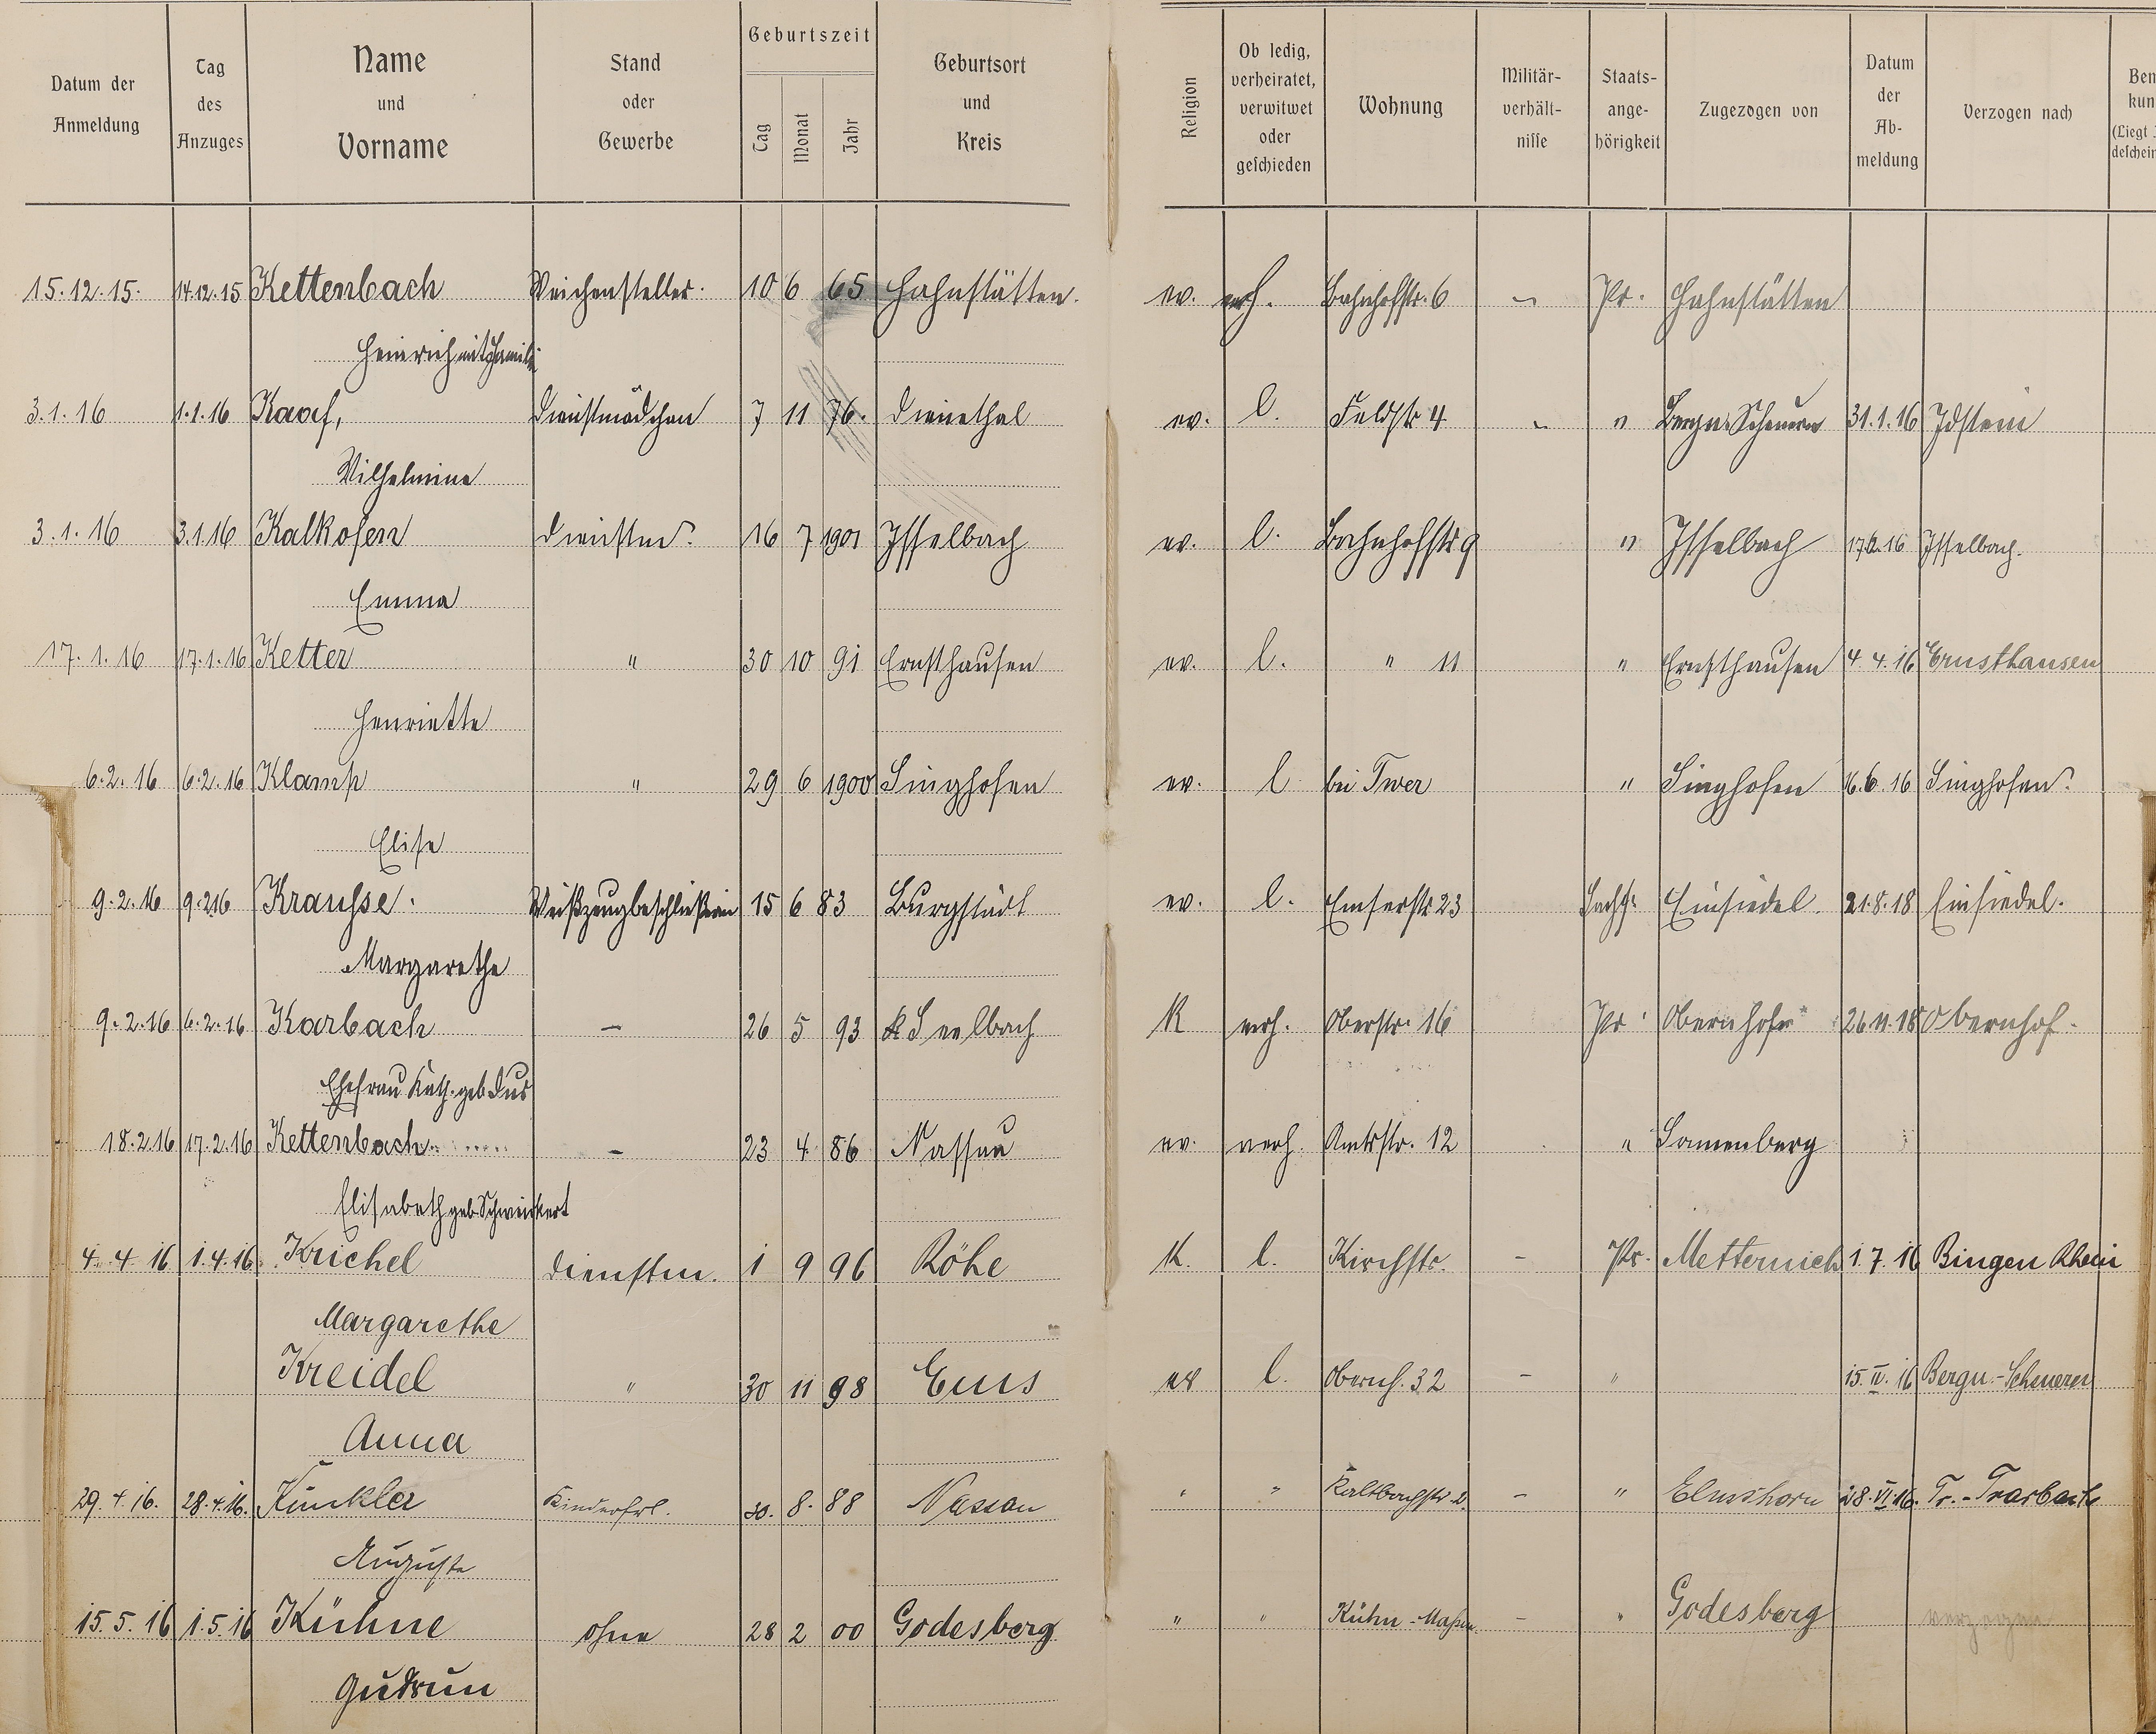 Datum der Anmeldung | Tag des Anzuges | Name und Vorname | Stand oder Gewerbe | Geburtszeit Tag Monat Jahr | Geburtsort und Kreis | Religion | Ob ledig, verheiratet, verwitwet oder geschieden | Wohnung | Militär-verhält-nisse | Staats-ange-hörigkeit | Zugezogen von | Datum der Ab-meldung | Verzogen nach
15.12.15. 14.12.15 Kettenbach Weichensteller. 10 6 65 Hahnstätten. ev. verh. Bahnhofstr. 6 - Pr. Hahnstätten
Heinrich mit Familie
3.1.16 1.1.16 Dienstmädchen 7 11 76. Dienethal ev. l. Feldstr 4 - " Bergn. Scheuern 31.1.16 Idstein
Wilhelmine
3.1.16 3.1.16 Kalkofen Dienstm. 16 7 1901 Isselbach ev. l. Bahnhofstr 9 " Isselbach Isselbach.
Emma
17.1.16 17.1.16 Ketter " 30 10 91 Ernsthausen ev. l. " 11 " Ernsthausen 4.4.16 Ernsthausen
Henriette
6.2.16 6.2.16 Klamp " 29 6 1900 Singhofen ev. l bei Twer " Singhofen 16.6.16 Singhofen.
Elise
9.2.16 9.2.16 Krausse. Weißzeugbeschließerin 15 6 83 Burgstädt ev. l. Emserstr 23 Sachs. Einsiedel. 21.8.18 Einsiedel.
Margarethe
9.2.16 6.2.16 Karbach - 26 5 93 Seelbach K verh. Oberstr. 16 Pr. Obernhof 26.11.18 Obernhof.
Ehefrau Kath. geb Dus
18.2.16 17.2.16 Kettenbach - 23 4 86 Nassau ev. verh. Amtsstr. 12 "
Elisabeth geb. Schweickert
4.4.16 1.4.16 Krichel Dienstm. 1 9 96 Röhe K. l. Kirchstr. - Pr. Metternich 1.7.16 Bingen Rhein
Margarethe
Kreidel " 30 11 98 Ems ev l. Obernh. 32 - " 15.IV.16 Bergn.-Scheuern
Anna
29.4.16. 28.4.16. Kunkler Kinderfrl. 30. 8. 88 Nassau " " Kaltbachstr 2. - " Elmshorn 28.VI.16. Tr.-Trarbach
Auguste
15.5.16 1.5.16 Kühne ohne 28 2 00 Godesberg " " - " Godesberg verzogen
Gudrun